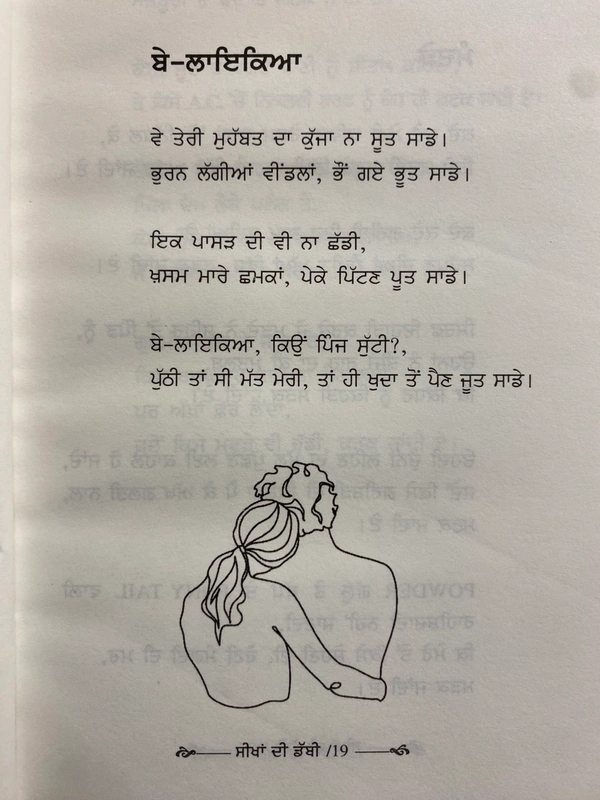 ਬੇ-ਲਾਇਕਿਆ
ਵੇ ਤੇਰੀ ਮੁਹੱਬਤ ਦਾ ਕੁੱਜਾ ਨਾ ਸੂਤ ਸਾਡੇ।
ਭੁਰਨ ਲੱਗੀਆਂ ਵੀਂਡਲਾਂ, ਭੌਂ ਗਏ ਭੂਤ ਸਾਡੇ।
ਇਕ ਪਾਸੜ ਦੀ ਵੀ ਨਾ ਛੱਡੀ,
ਖ਼ਸਮ ਮਾਰੇ ਛਮਕਾਂ, ਪੇਕੇ ਪਿੱਟਣ ਪੂਤ ਸਾਡੇ।
ਬੇ-ਲਾਇਕਿਆ, ਕਿਉਂ ਪਿੰਜ ਸੁੱਟੀ?,
ਪੁੱਠੀ ਤਾਂ ਸੀ ਮੱਤ ਮੇਰੀ, ਤਾਂ ਹੀ ਖੁਦਾ ਤੋਂ ਪੈਣ ਜੂਤ ਸਾਡੇ।
ਸੀਖਾਂ ਦੀ ਡੱਬੀ /19